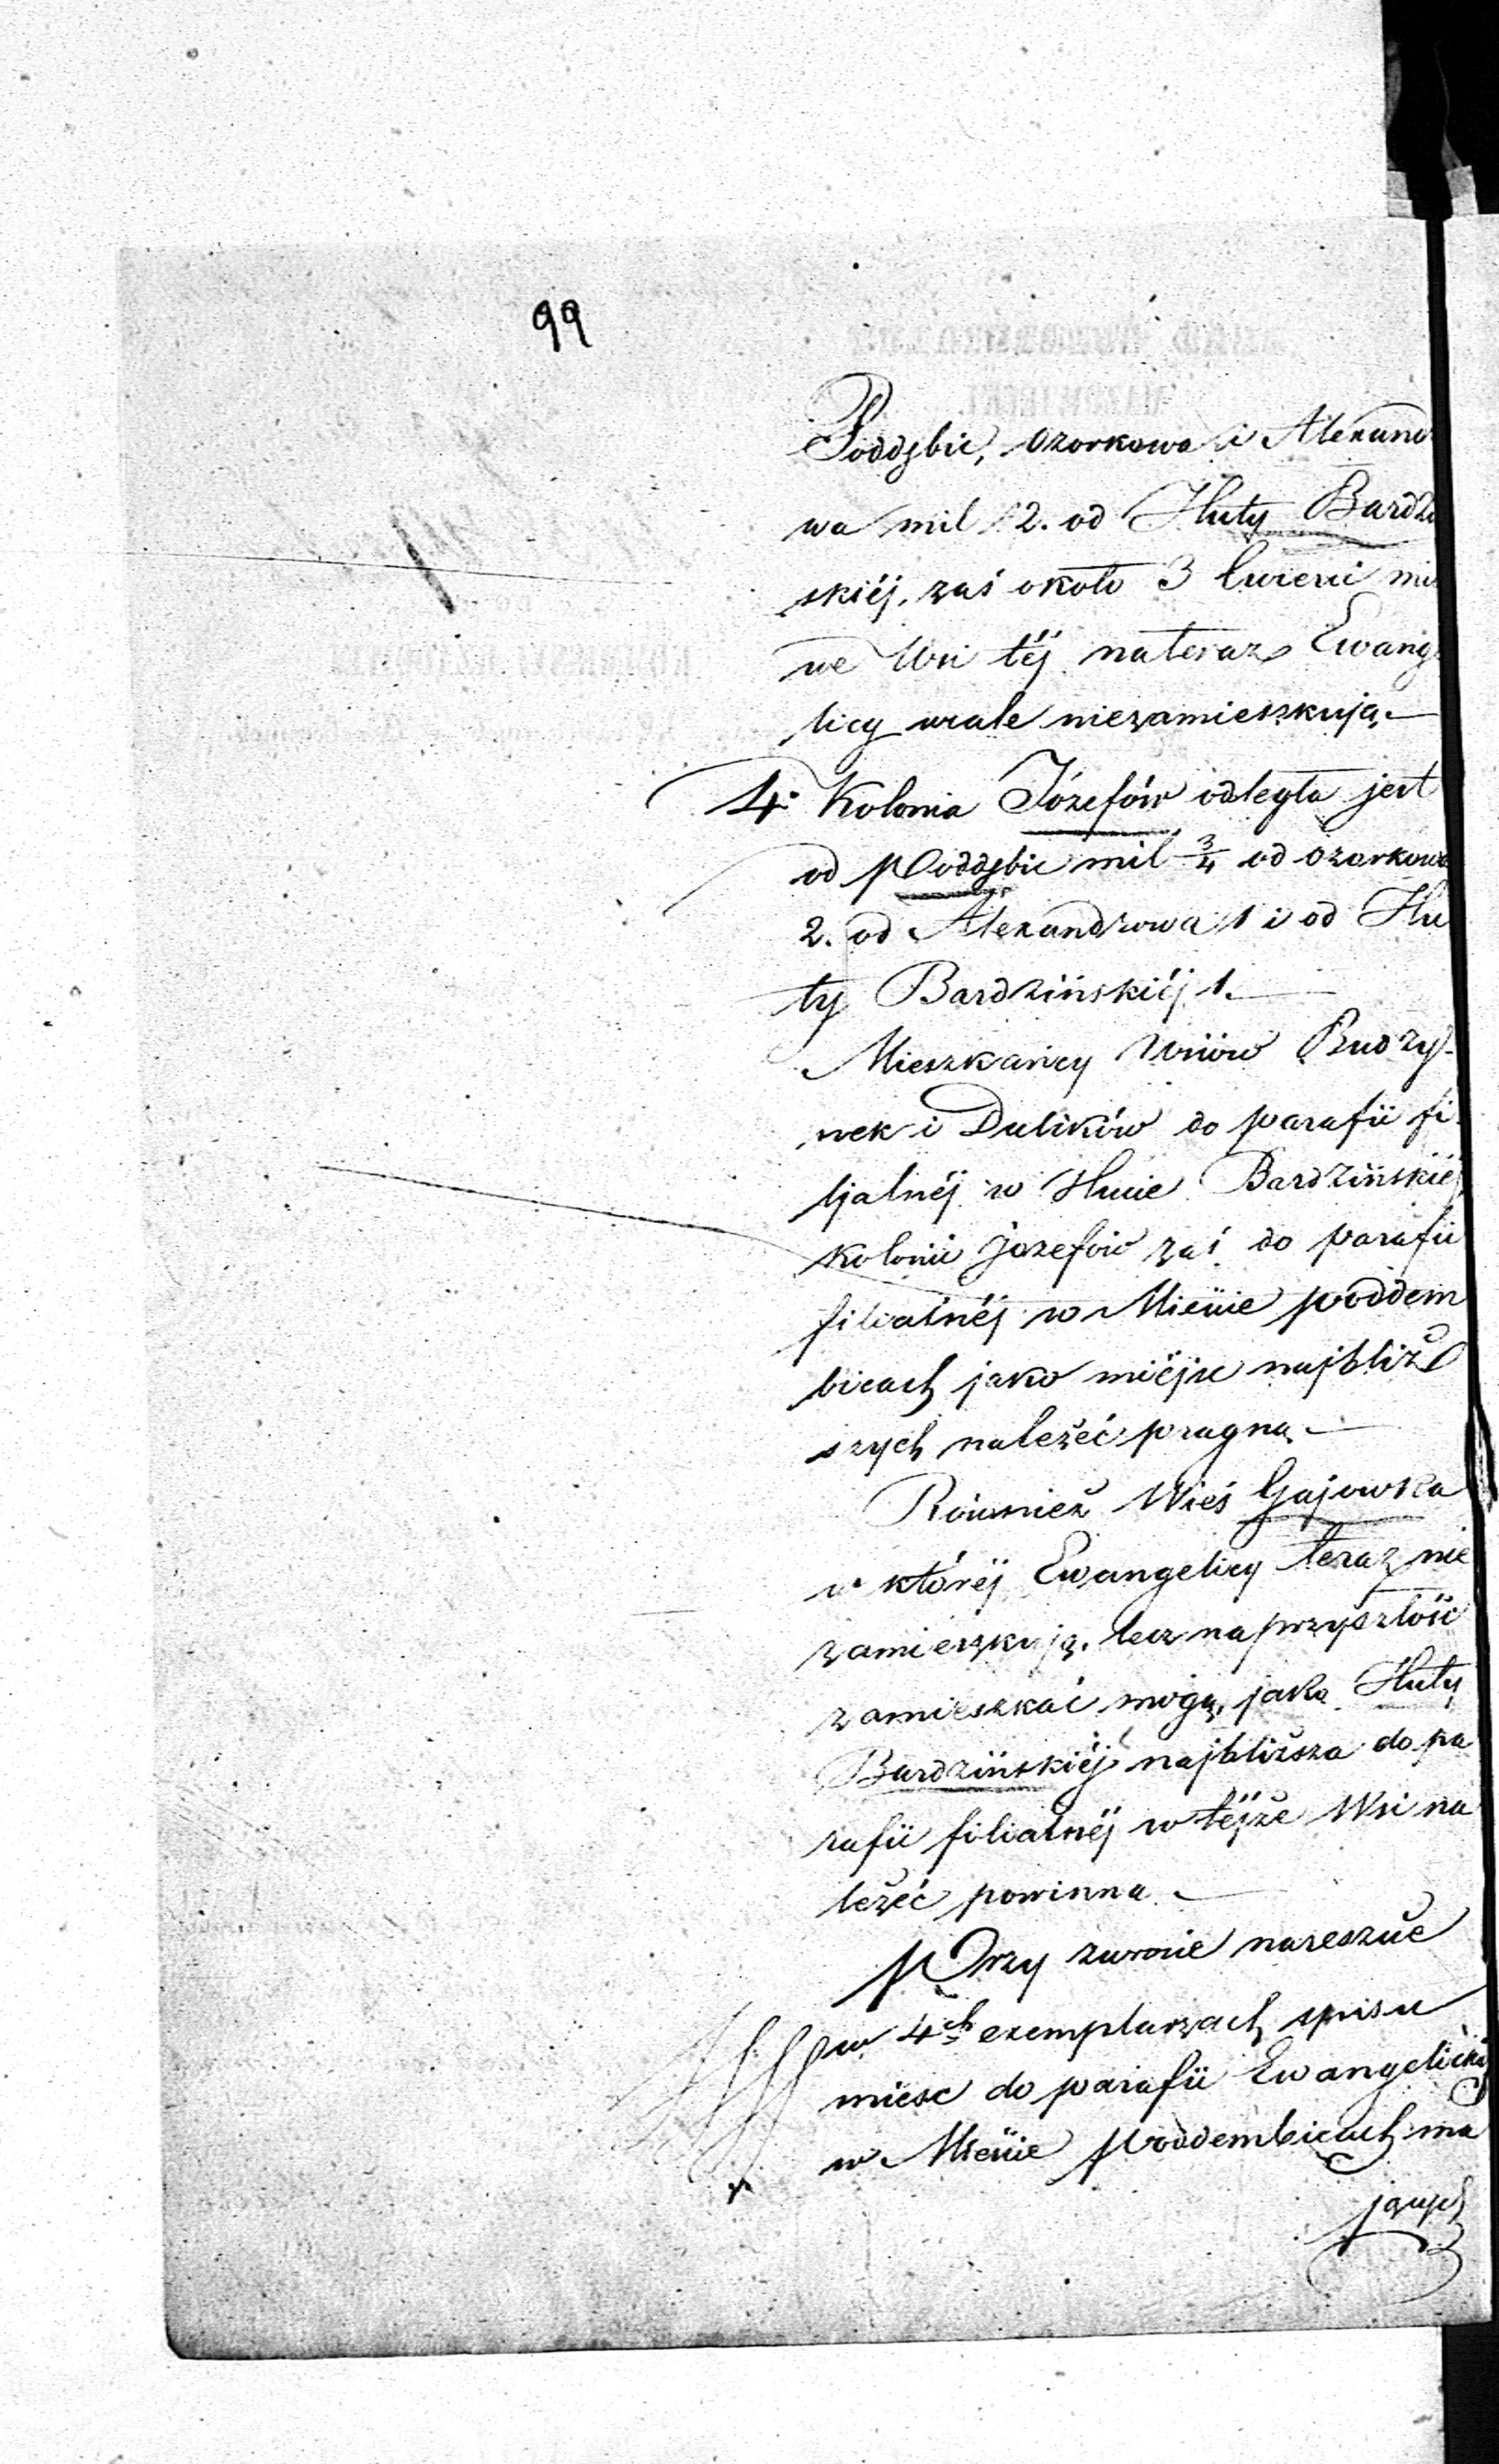 99
Poddębic, Ozorkowa i Alexand
wa mil 2. od Huty Bardzi
skiéj, zaś około 3 ćwierci mi
we Wsi téj nateraz Ewang
licy wcale niezamieszkują.—
4. Kolonia Józefów odległa jest
od Poddębic mil 3/4 od Ozorkowa
2. od Alexandrowa 1 i od Hu
ty Bardzińskiéj 1.—
Mieszkańcy Wsiów Budzy-
nek i Dulików do parafii fi-
ljalnéj w Hucie Bardzińskiéj
kolonii Józefów zaś do parafii
filialnéj w Mieście Poddem
bicach jako miéjsc najbliż
szych należéć pragną.—
Również Wieś Gajowka
w któréj Ewangelicy teraz nie
zamieszkują, lecz naprzyszłość
zamieszkać mogą, jako Huty
Bardzińskiéj najbliższa do pa
rafii filialnéj w téjże Wsi na
leżéć powinna.—
Przy zwrocie nareszcie
w 4ch exemplarzach spisu
miesc do parafii Ewangelicki
w Mieście Poddembicach ma
jących